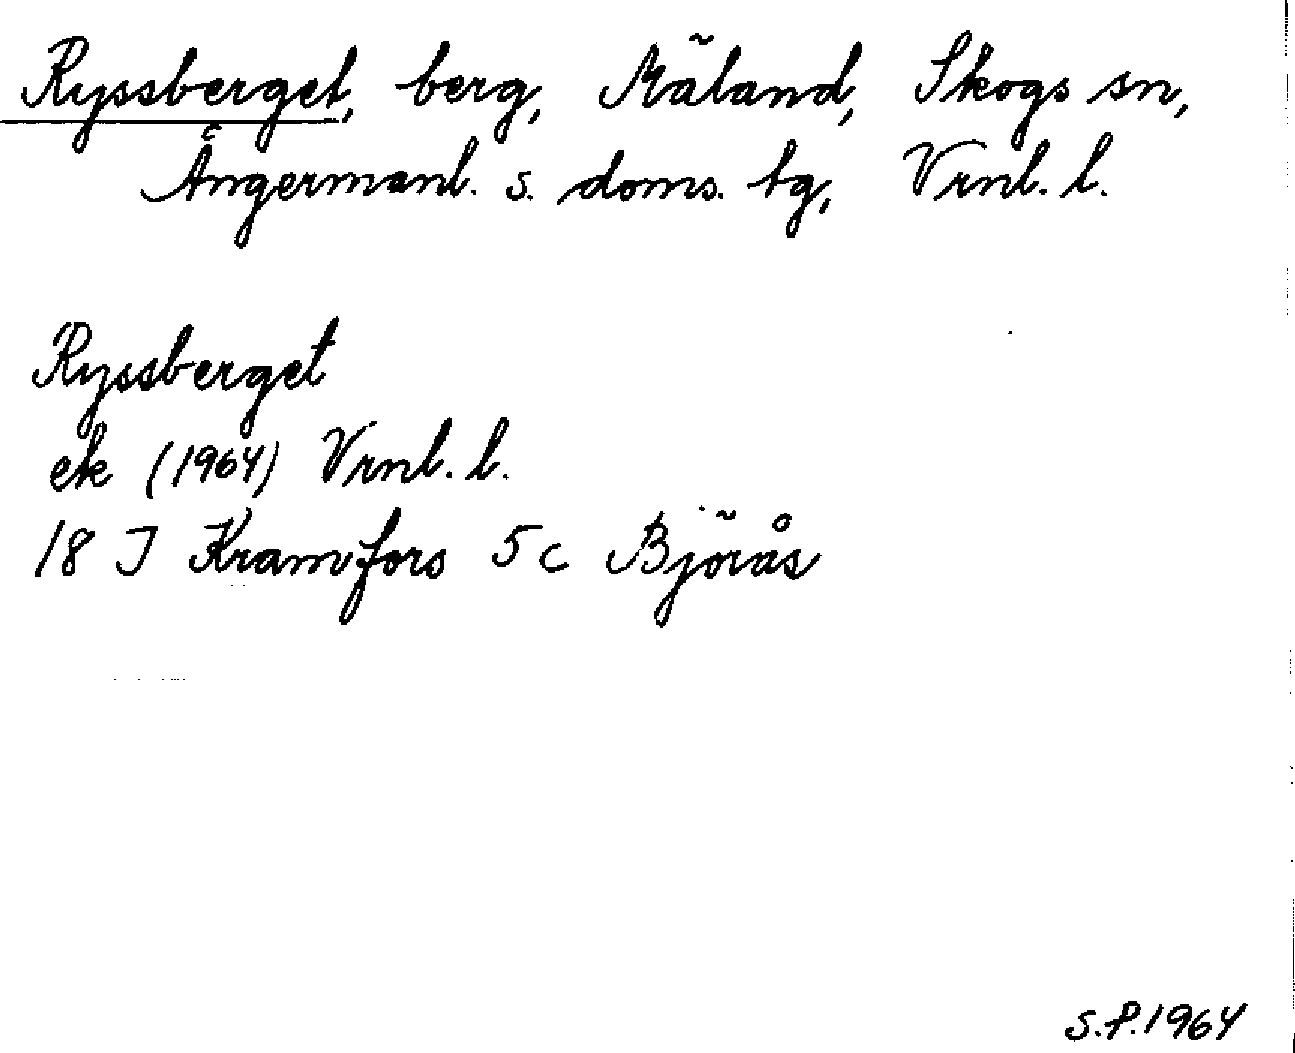 Ryssberget, berg, Mäland, Skogs sn,
Ångermanl. s. doms. tg, Vrnl. l.
Ryssberget
ek (1964) Vrnl. l.
18 J Kramfors 5 c Björås
S.P.1964